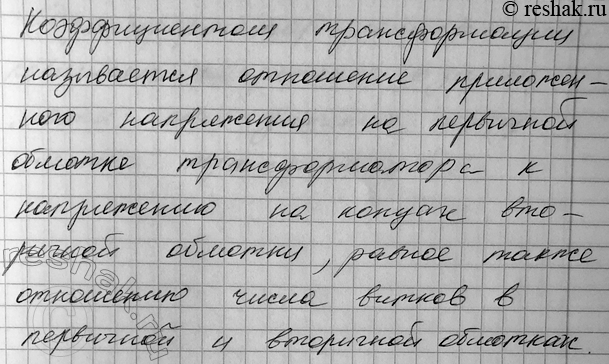 © reshak.ru
Коэффициентом трансформации
называется отношение приложен-
ного напряжения на первичной
обмотке трансформатора к
напряжению на концах вто-
ричной обмотки, равное также
отношению числа витков в
первичной и вторичной обмотках.
reshak.ru